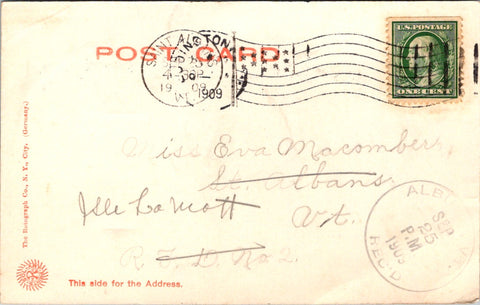 POST CARD
U.S. POSTAGE
ONE CENT
1909
Miss Eva Macomber,
St. Albans,
Isle La Mott
Vt.
R. F. D. No 2.
ALB
SEP
25
P.M
1909
REC'D
The Rotograph Co., N. Y., City. (Germany.)
This side for the Address.